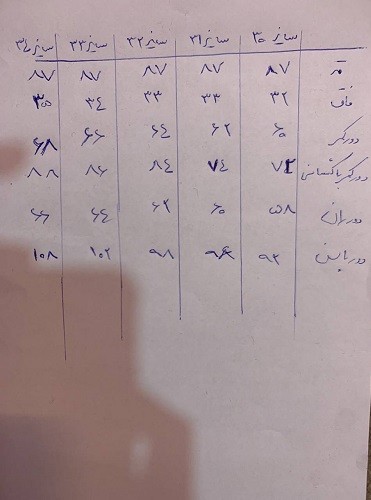 سایز ۳۰ سایز ۳۱ سایز ۳۲ سایز ۳۳ سایز ۳۴
قد ۸۷ ۸۷ ۸۷ ۸۷ ۸۷
فاق ۳۲ ۳۳ ۳۳ ۳۴ ۳۵
دور کمر ۶۰ ۶۲ ۶۴ ۶۶ ۶۸
دور کمر با کشسانی ۷۲ ۷۴ ۸۴ ۸۶ ۸۸
دور ران ۵۸ ۶۰ ۶۲ ۶۴ ۶۶
دور باسن ۹۲ ۹۶ ۹۸ ۱۰۲ ۱۰۸